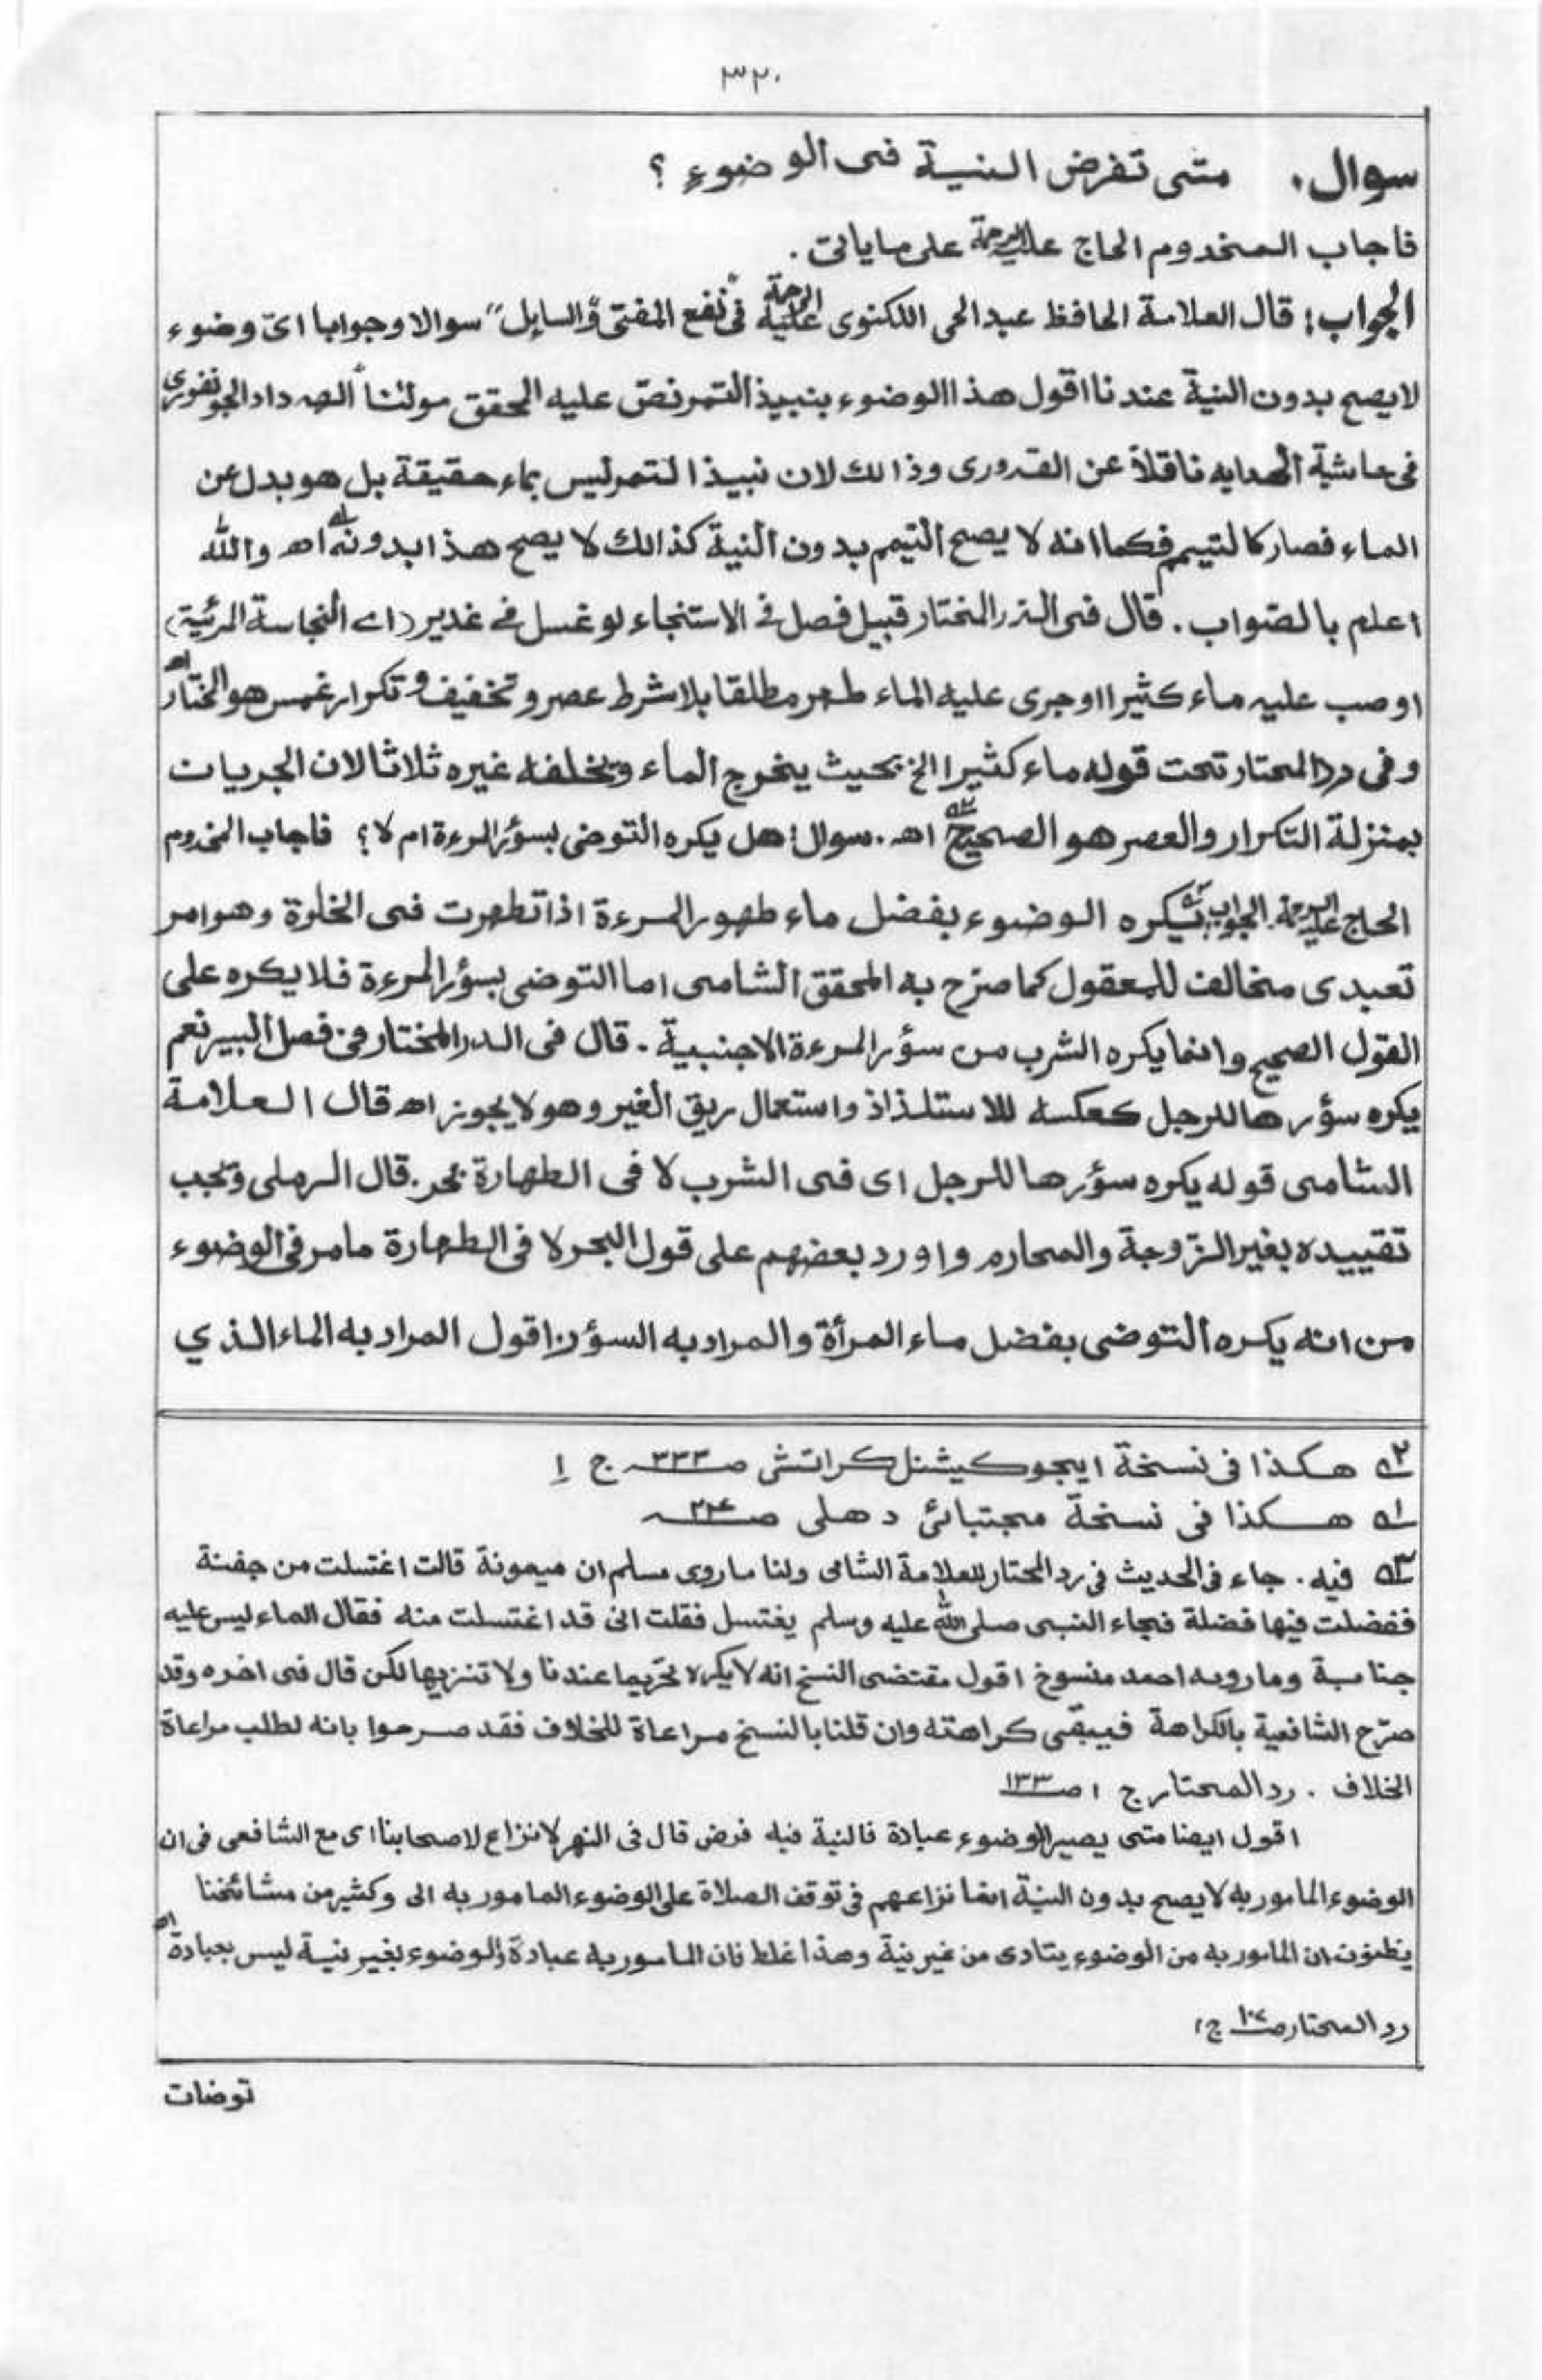 ٣٢٠
سوال. متى تفرض النية فى الوضوءِ ؟
فاجاب المخدوم الحاج عليه الرحمة على ماياتى .
الجواب؛ قال العلامة الحافظ عبدالحى اللكنوى عليه الرحمة فى "نفع المفتى والسايل" سوالا وجوابا اىّ وضوء
لايصح بدون النية عندنا اقول هذا الوضوء بنبيذ التمر نصّ عليه المحقق مولٰنا الهداد الجونفورى
فى حاشية الهدايه ناقلاً عن القدورى وذالك لان نبيذ التمر ليس بماء حقيقة بل هو بدل عن
الماء فصار كالتيمم فكما انه لا يصح التيمم بدون النية كذالك لا يصح هذا بدونه اھ والله
اعلم بالصّواب . قال فى الدر المختار قبيل فصل فى الاستنجاء لو غسل فے غدير (اے النجاسة المرئية)
او صب عليه ماء كثيرا او جرى عليه الماء طهر مطلقا بلا شرط عصر و تخفيف و تكرار غمس هو المختار اھ
و فى رد المحتار تحت قوله ماء كثيرا الخ بحيث يخرج الماء ويخلفه غيره ثلاثا لان الجريات
بمنزلة التكرار والعصر هو الصحيح ٢ه اھ . سوال؛ هل يكره التوضى بسؤر المرءة ام لا ؟ فاجاب المخدوم
الحاج عليه الرحمة. الجواب ٣ه يكره الوضوء بفضل ماء طهور المرءة اذا تطهرت فى الخلوة وهو امر
تعبدى مخالف للمعقول كما صرّح به المحقق الشامى اما التوضى بسؤر المرءة فلا يكره على
القول الصحيح وانما يكره الشرب من سؤر المرءة الاجنبية . قال فى الدر المختار فى فصل البير نعم
يكره سؤرها للرجل كعكسه للاستلذاذ واستعمال ريق الغير وهو لا يجوز اھ قال العلامة
الشامى قوله يكره سؤرها للرجل اى فى الشرب لا فى الطهارة بحر. قال الرملى ويجب
تقييده بغير الزّوجة والمحارم واورد بعضهم على قول البحر لا فى الطهارة مامر فى الوضوء
من انه يكره التوضى بفضل ماء المرأة والمراد به السؤر اقول المراد به الماء الذي
٢ه هكذا فى نسخة ايجوكيشنل كراتشى صـ٣٣٣ ج ١
١ه هكذا فى نسخة مجتبائى دهلى
٣ه فيه . جاء فى الحديث فى رد المحتار للعلامة الشامى ولنا ماروى مسلم ان ميمونة قالت اغتسلت من جفنة
ففضلت فيها فضلة فجاء النبى صلى الله عليه وسلم يغتسل فقلت انى قد اغتسلت منه فقال الماء ليس عليه
جنابة وما رويه احمد منسوخ اقول مقتضى النسخ انه لا يكره تحريما عندنا ولا تنزيها لكن قال فى اخره وقد
صرّح الشافعية بالكراهة فيبقى كراهته وان قلنا بالنسخ مراعاة للخلاف فقد صرحوا بانه لطلب مراعاة
الخلاف . رد المحتار ج ١ صـ١٣٣
اقول ايضا متى يصير الوضوء عبادة فالنية فيه فرض قال فى النهر لا نزاع لاصحابنا اى مع الشافعى فى ان
الوضوء المامور به لا يصح بدون النية انما نزاعهم فى توقف الصلاة على الوضوء المامور به الى وكثير من مشائخنا
يظنون ان المامور به من الوضوء يتادى من غير نية وهذا غلط فان المامور به عبادة والوضوء بغير نية ليس بعبادة اھ
رد المحتار صـ١٠٧ ج ١
توضات